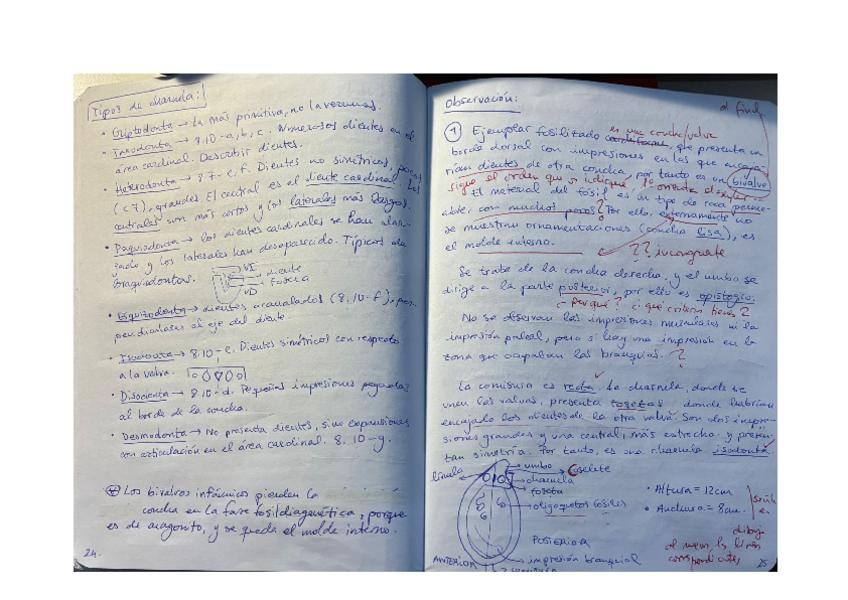 Tipos de charnela:
• Criptodonta → La más primitiva, no la veremos.
• Taxodonta → 8.10-a, b, c. Numerosos dientes en el
área cardinal. Describir dientes.
• Heterodonta → 8.7-e, f. Dientes no simétricos, pocos
(<7), grandes. El central es el diente cardinal. Los
centrales son más cortos y los laterales más largos.
• Paquiodonta → los dientes cardinales se han
y los laterales han desaparecido. Típicos de
VI
diente
foseta
VD
dientes acanalados (8.10-f),
al eje del diente.
• Isodonta → 8.10-e. Dientes simétricos con respecto
a la valva.
• Disodonta → 8.10-d. Pequeñas impresiones pegadas
al borde de la concha.
• Desmodonta → No presenta dientes, sino expresiones
con articulación en el área cardinal. 8.10-g.
Los bivalvos infáunicos pierden la
concha en la fase fosildiagenética, porque
es de aragonito, y se queda el molde interno.
24.
Observación:
al final
es una concha/valva
1 Ejemplar fosilizado que presenta un
borde dorsal con impresiones en las que
dientes de otra concha, por tanto es un bivalvo
sigue el orden que se indique,
El material del fósil es un tipo de roca
con muchos poros? Por ello, externamente no
se muestran ornamentaciones (concha lisa), es
el molde interno.
?? incongruente
Se trata de la concha derecha, y el umbo se
dirige a la parte posterior, por ello es opistogiro.
¿Por qué? ¿qué criterio tienes?
No se observan las impresiones musculares ni la
impresión paleal, pero si hay una impresión en la
zona que ocupaban las branquias. ?
La comisura es recta. La charnela, donde se
unen las valvas, presenta fosetas donde habrían
encajado los dientes de la otra valva. Son dos impre-
siones grandes y una central, más estrecha y presen-
tan simetría. Por tanto, es una charnela isodonta.
lúnula
umbo
Coselete
charnela
foseta
oligoquetos fósiles
• Altura = 12cm
• Anchura = 8cm.
POSTERIOR
dibuja
correspondientes
ANTERIOR
impresión branquial
25